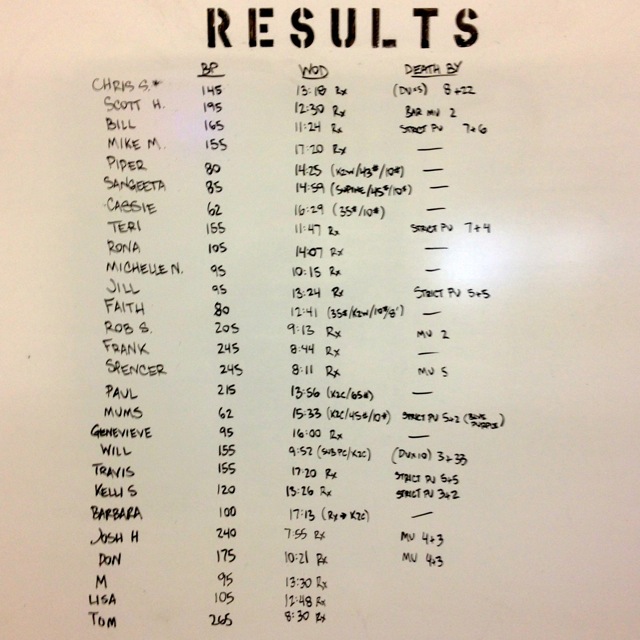 RESULTS
BP WOD DEATH BY
CHRIS S.* 145 13:18 Rx (DUx5) 8+22
SCOTT H. 195 12:30 Rx BAR MU 2
BILL 165 11:24 Rx STRICT PU 7+6
MIKE M. 155 17:20 Rx —
PIPER 80 14:25 (K2W/43#/10#) —
SANGEETA 85 14:59 (SUPINE/45#/10#) —
CASSIE 62 16:29 (35#/10#) —
TERI 155 11:47 Rx STRICT PU 7+4
RONA 105 14:07 Rx —
MICHELLE N. 95 10:15 Rx —
JILL 95 13:24 Rx STRICT PU 5+5
FAITH 80 12:41 (35#/K2W/10#/8') —
ROB S. 205 9:13 Rx MU 2
FRANK 245 8:44 Rx —
SPENCER 245 8:11 Rx MU 5
PAUL 215 13:56 (K2C/65#) —
MUMS 62 15:33 (K2C/45#/10#) STRICT PU 5+2 (BLUE PURPLE)
GENEVIEVE 95 16:00 Rx —
WILL 155 9:52 (SUB PC/K2C) (DUx10) 3+33
TRAVIS 155 17:20 Rx STRICT PU 5+5
KELLI S 120 13:26 Rx STRICT PU 3+2
BARBARA 100 17:13 (Rx→K2C) —
JOSH H 240 7:55 Rx MU 4+3
DON 175 10:21 Rx MU 4+3
M 95 13:30 Rx
LISA 105 12:48 Rx
TOM 265 8:30 Rx